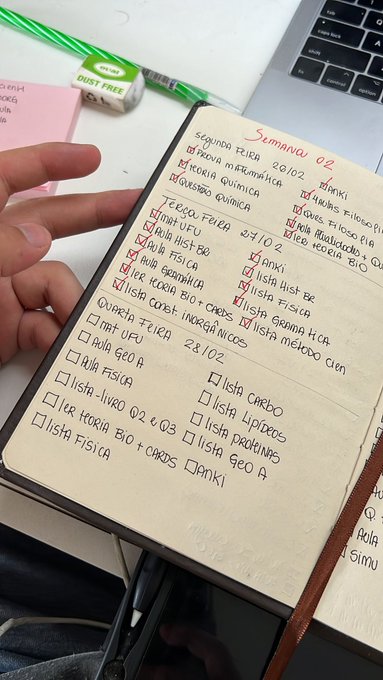 DUST FREE
tab
caps lock
shift
fn
control
option
Semana 02
SEGUNDA FEIRA 26/02
PROVA MATEMÁTICA
TEORIA QUÍMICA
QUESTÃO QUÍMICA
ANKI
4 AULAS FILOSOFIA
QUES. FILOSOFIA
AULA Atualidades + Qu
LER TEORIA BIO
TERÇA FEIRA 27/02
MAT UFU
AULA HIST BR
AULA FÍSICA
AULA GRAMÁTICA
LER TEORIA BIO + CARDS
LISTA CONST. INORGÂNICOS
ANKI
LISTA HIST BR
LISTA FÍSICA
LISTA GRAMATICA
LISTA MÉTODO CIEN
QUARTA FEIRA 28/02
MAT UFU
AULA GEO A
AULA FISICA
LISTA-LIVRO Q2 e Q3
LER TEORIA BIO + CARDS
LISTA FÍSICA
LISTA CARBO
LISTA LIPÍDEOS
LISTA PROTEÍNAS
LISTA GEO A
ANKI
AULA
SIMU